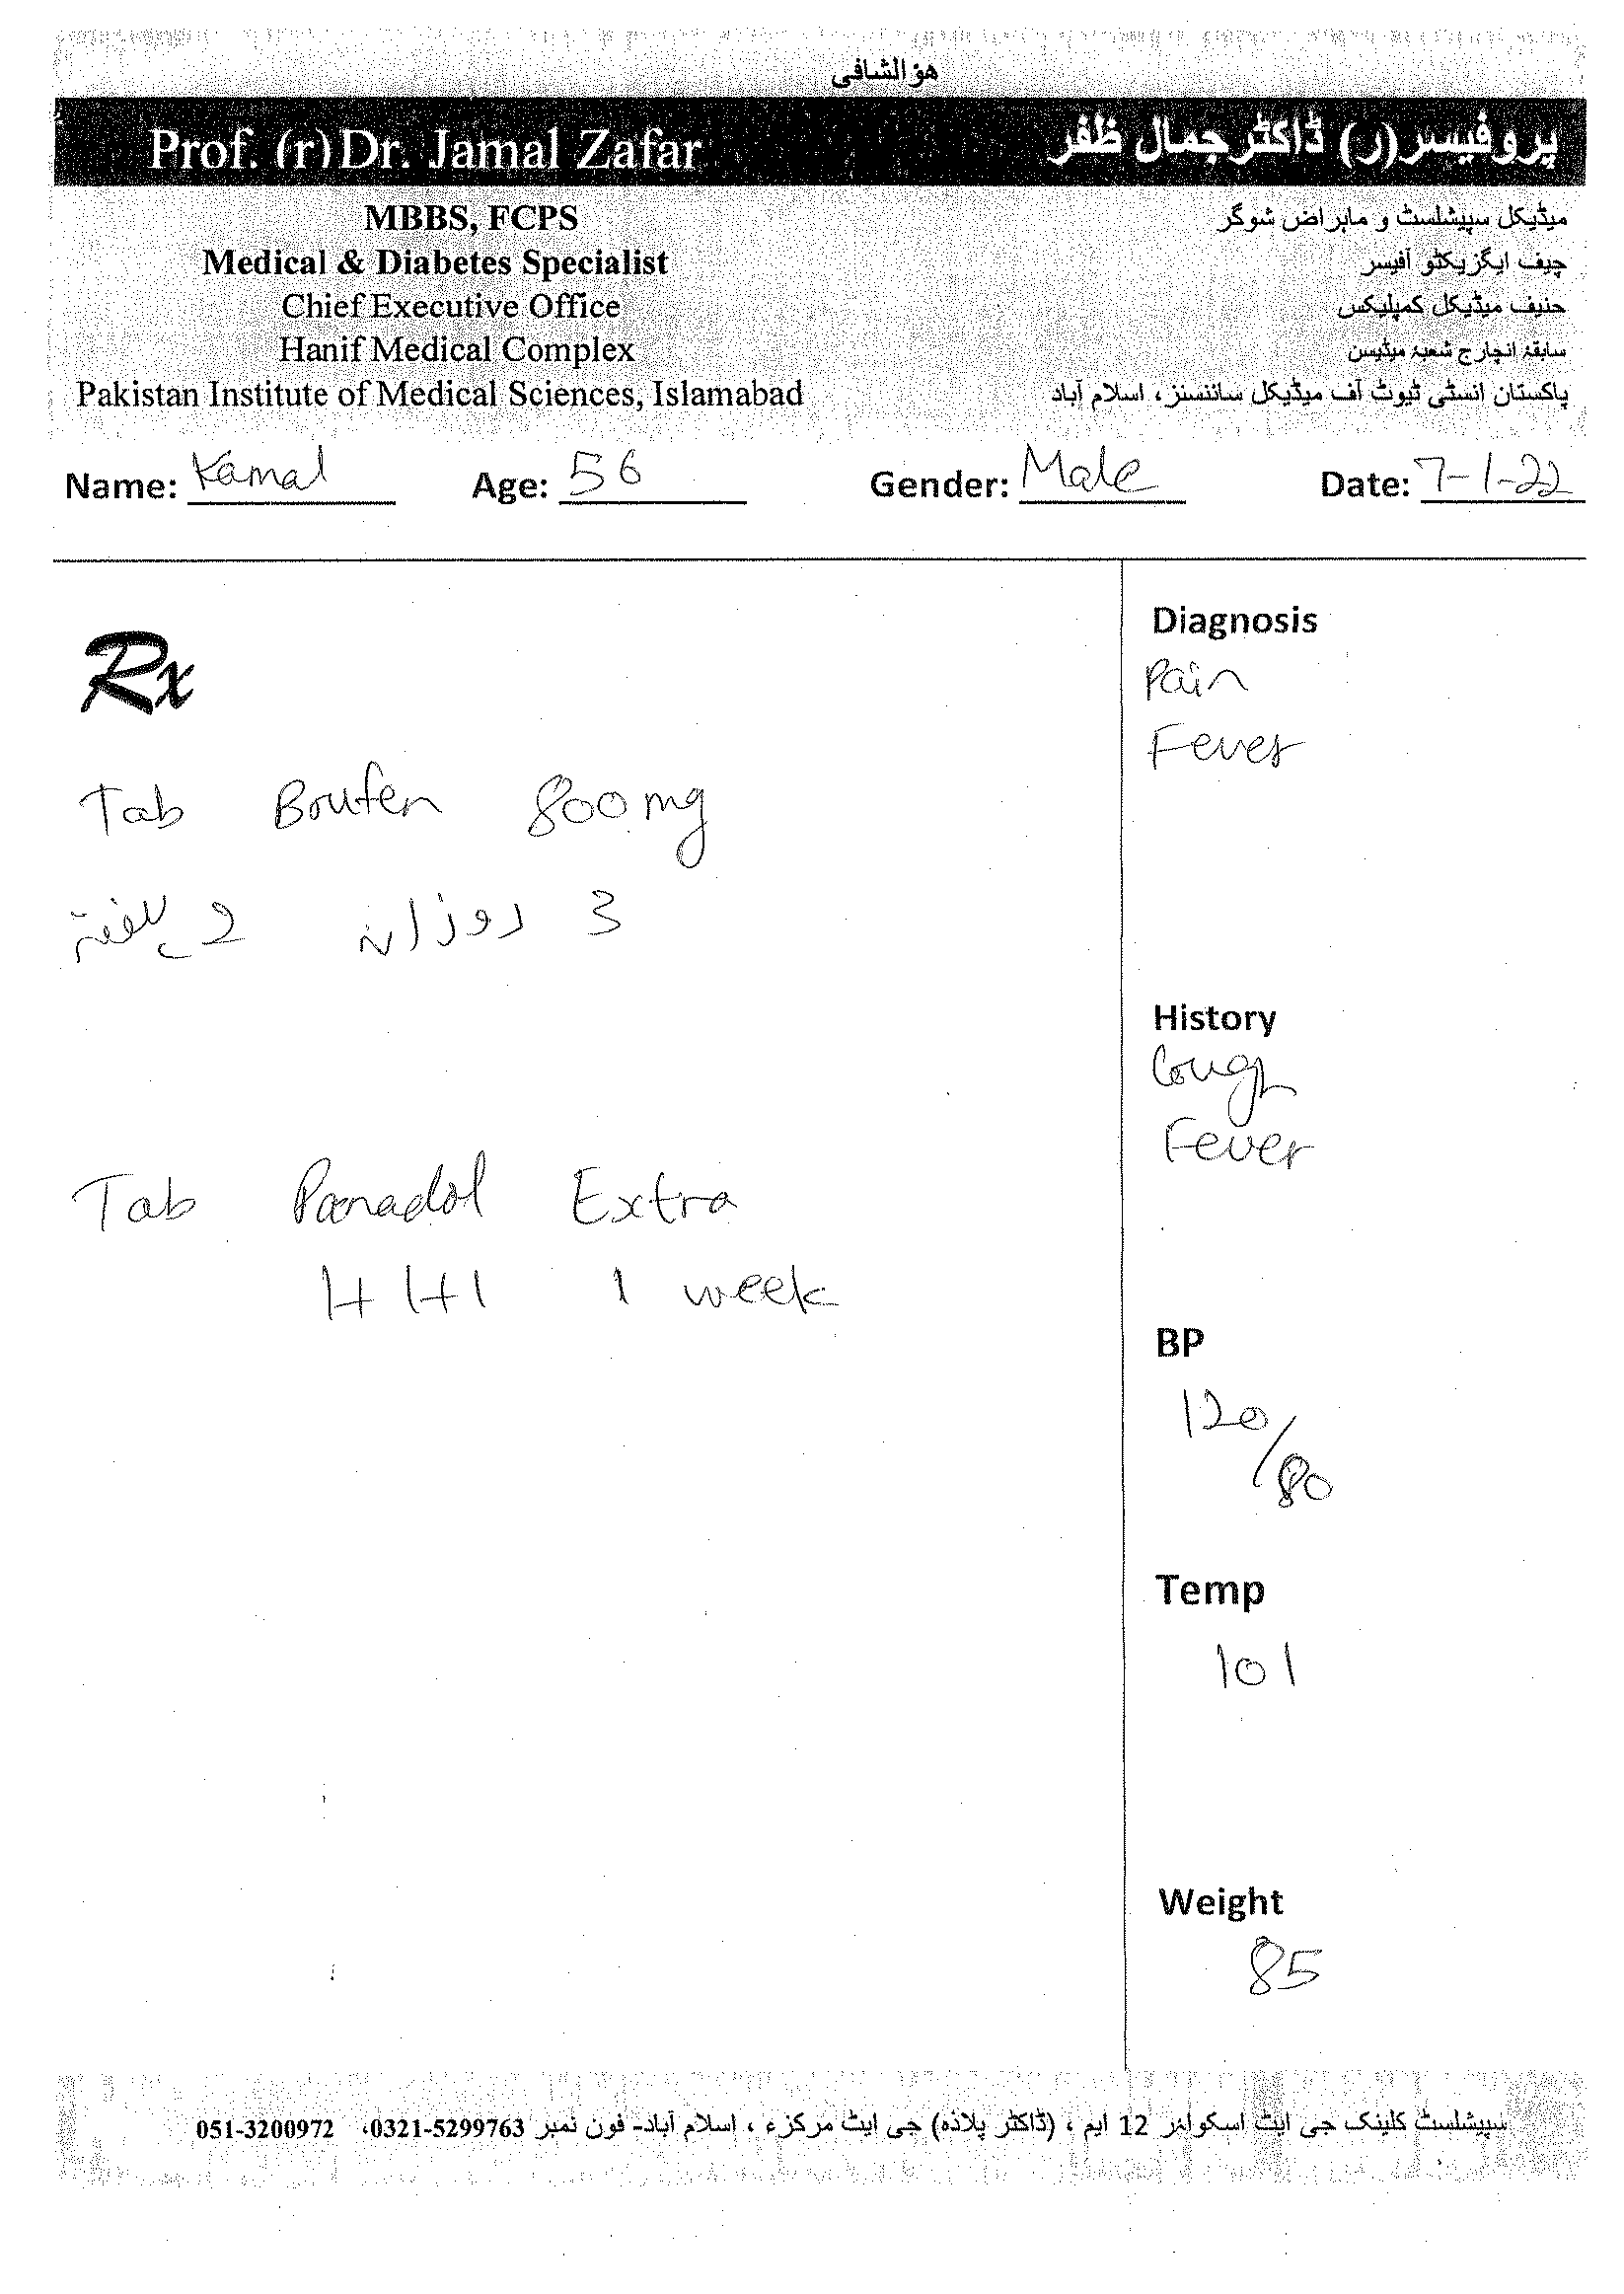 هو الشافی
Prof. (r) Dr. Jamal Zafar
پروفیسر(ر) ڈاکٹرجمال ظفر
MBBS, FCPS
Medical & Diabetes Specialist
Chief Executive Office
Hanif Medical Complex
Pakistan Institute of Medical Sciences, Islamabad
میڈیکل سپیشلسٹ و ماہراض شوگر
چیف ایگزیکٹو آفیسر
حنیف میڈیکل کمپلیکس
سابقہ انچارج شعبہ میڈیسن
پاکستان انسٹی ٹیوٹ آف میڈیکل سائنسز، اسلام آباد
Name: Kamal Age: 56 Gender: Male Date: 7-1-22
Rx
Tab Brufen 800mg
3 روزانہ 2 ہفتہ
Tab Panadol Extra
1+1+1 1 week
Diagnosis
Pain
Fever
History
Cough
Fever
BP
120/80
Temp
101
Weight
85
سپیشلسٹ کلینک جی ایٹ اسکوائر 12 ایم ، (ڈاکٹر پلازہ) جی ایٹ مرکزء ، اسلام آباد- فون نمبر 0321-5299763، 051-3200972